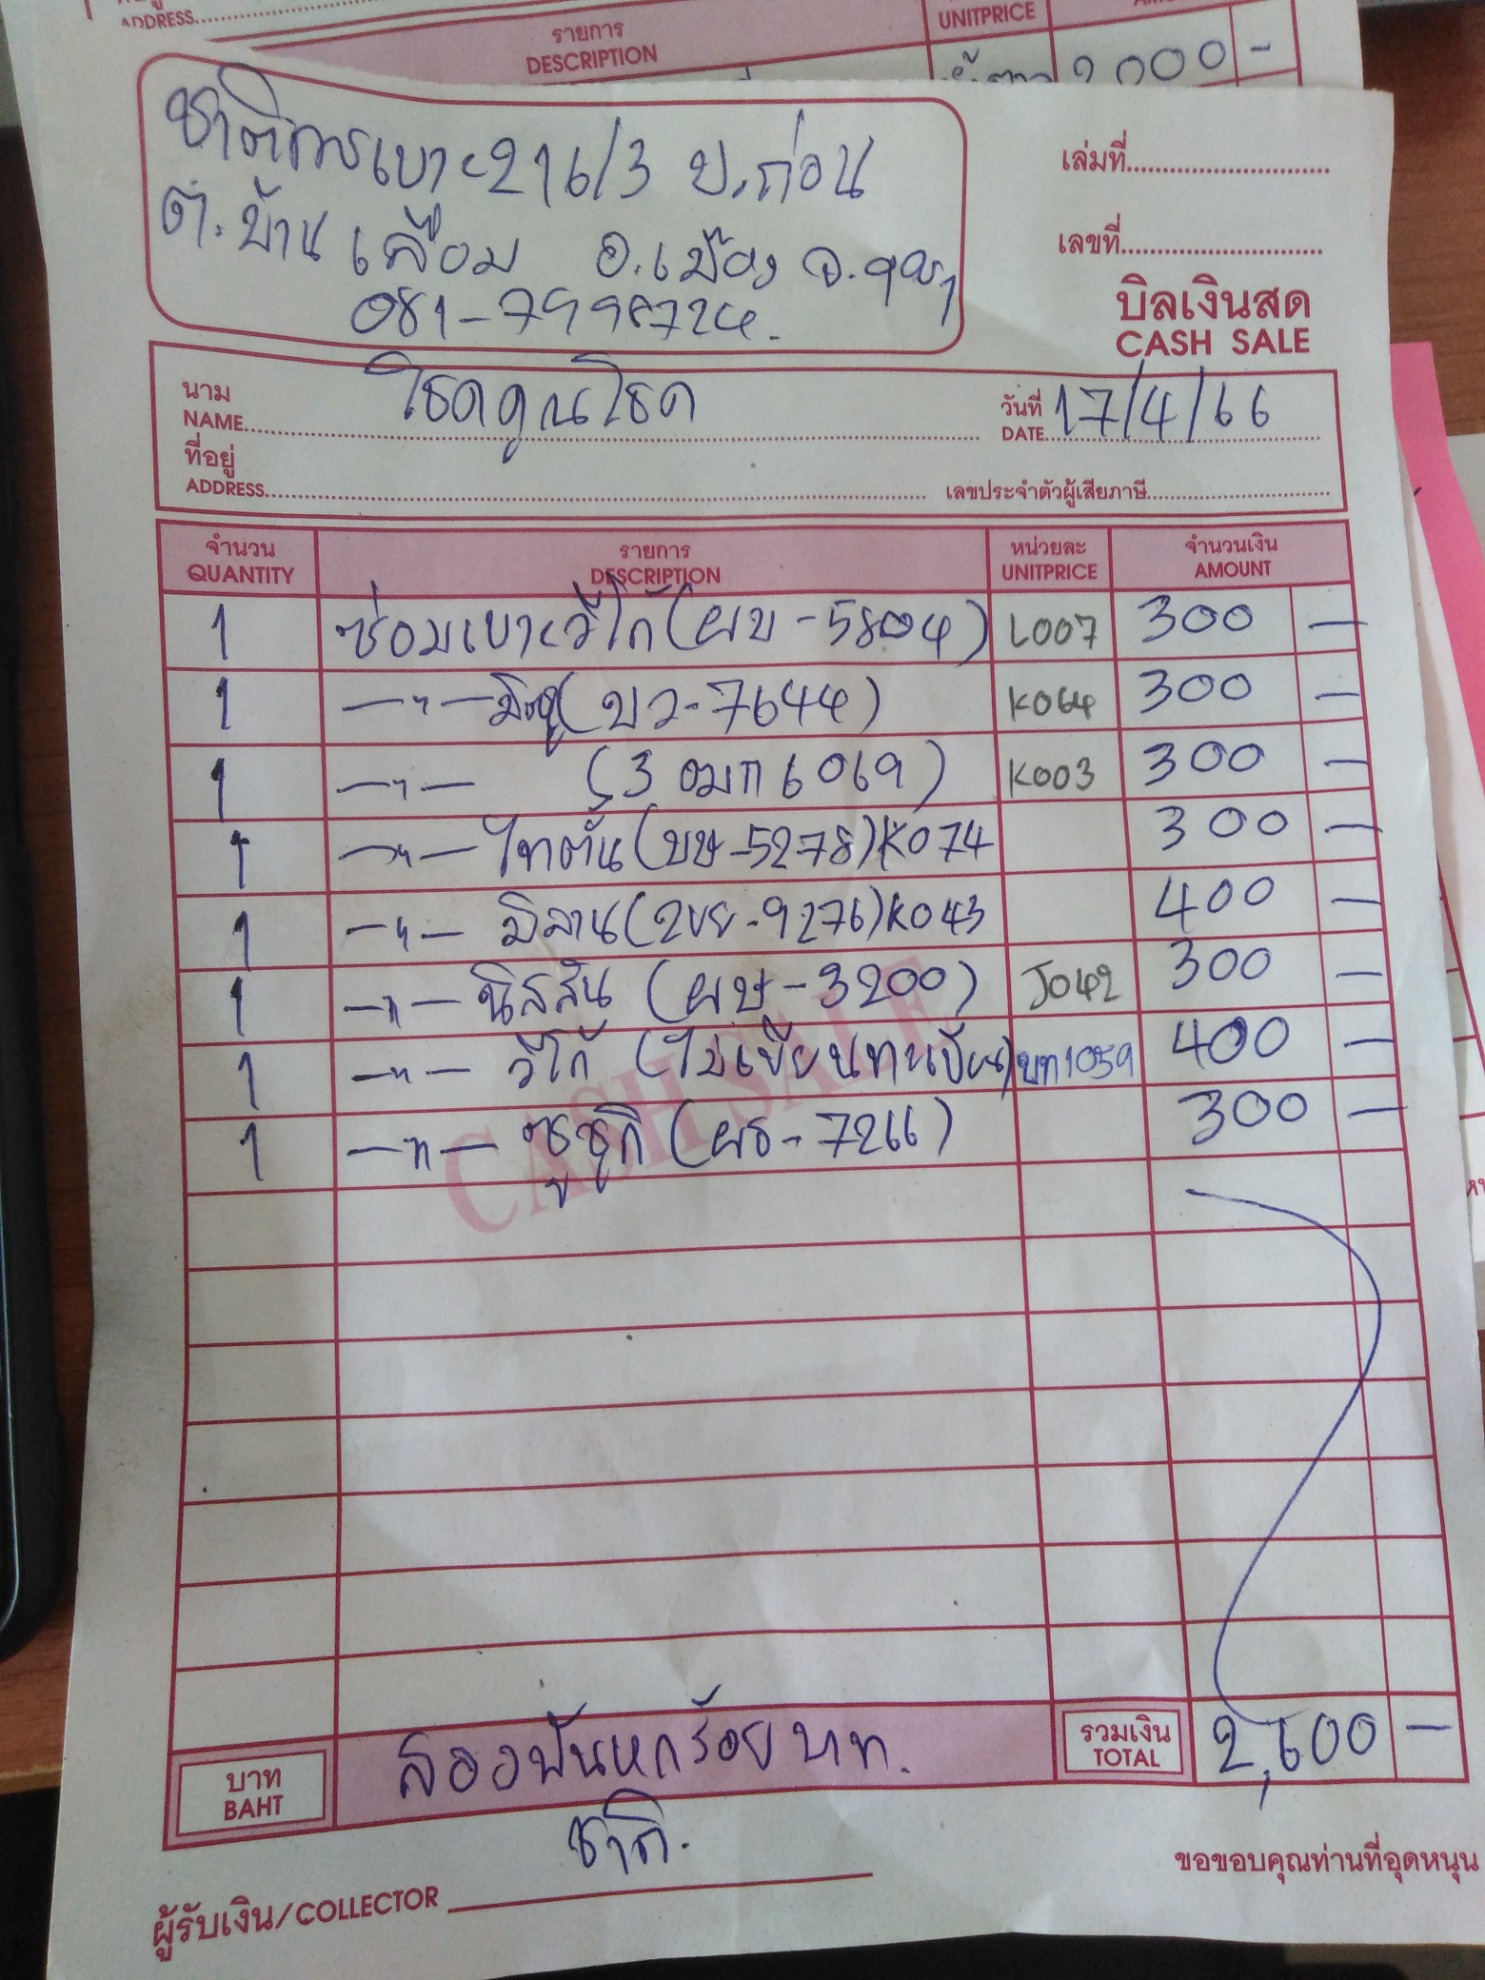 ADDRESS
รายการ
DESCRIPTION
UNITPRICE
2,000 -
ชาติการเบาะ 216/3 บ.ก่อน
ต.บ้านเลื่อม อ.เมือง จ.อุดร
081-7998724.
เล่มที่
เลขที่
บิลเงินสด
CASH SALE
นาม
NAME
โชคคูณโชค
วันที่
DATE
17/4/66
ที่อยู่
ADDRESS
เลขประจำตัวผู้เสียภาษี
จำนวน รายการ หน่วยละ จำนวนเงิน
QUANTITY DESCRIPTION UNITPRICE AMOUNT
1 ซ่อมเบาะวีโก้ (ผบ-5804) L007 300 -
1 —"— มิตซู (บว-7644) K064 300 -
1 —"— (3 ฒก 6069) K003 300 -
1 —"— ไทตั้น (บษ-5278) K074 300 -
1 —"— (2ขย-9276) K043 400 -
1 —"— นิสสัน (ผษ-3200) J042 300 -
1 —"— วีโก้ (ไม่เขียนทะเบียน) บท1059 400 -
1 —"— ซูซูกิ (ผธ-7266) 300 -
CASH SALE
บาท
BAHT
สองพันหกร้อยบาท.
รวมเงิน
TOTAL
2,600 -
ชาติ.
ผู้รับเงิน/COLLECTOR
ขอขอบคุณท่านที่อุดหนุน